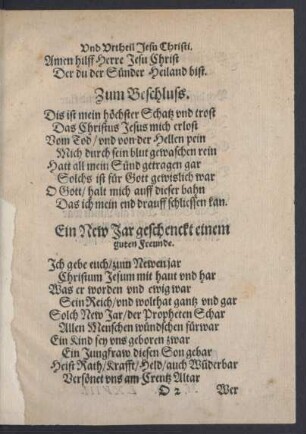 Vnd Vrtheil Jesu Christi.
Amen hilff Herre Jesu Christ
Der du der Sünder Heiland bist.
Zum Beschluss.
Dis ist mein höchster Schatz vnd trost
Das Christus Jesus mich erlost
Vom Tod/ vnd von der Hellen pein
Mich durch sein blut gewaschen rein
Hatt all mein Sünd getragen gar
Solchs ist für Gott gewislich war
O Gott/ halt mich auff dieser bahn
Das ich mein end drauff schliessen kan.
Ein New Jar geschenckt einem
guten Freunde.
Ich gebe euch/ zum Newen jar
Christum Jesum mit haut vnd har
Was er worden vnd ewig war
Sein Reich/ vnd wolthat gantz vnd gar
Solch New Jar/ der Propheten Schar
Allen Menschen wündschen fürwar
Ein Kind sey vns geboren zwar
Ein Jungfraw diesen Son gebar
Heist Rath/ Krafft/ Held/ auch Wüderbar
Versönet vns am Creutz Altar
O 2 Wer